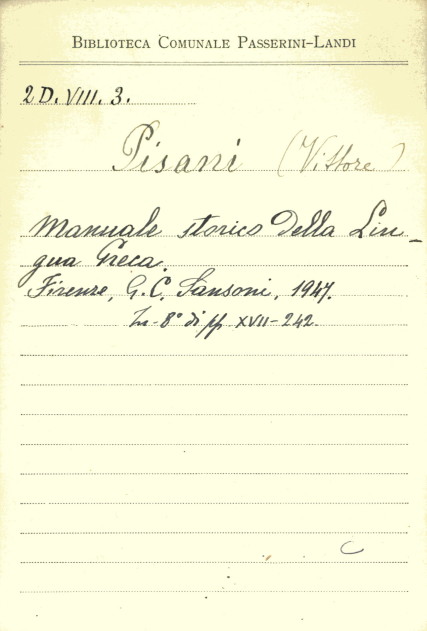 BIBLIOTECA COMUNALE PASSERINI-LANDI
2 D. VIII. 3.
Pisani (Vittore)
Manuale storico della Lin-
gua Greca.
Firenze, G. C. Sansoni, 1947.
In-8° di pp. XVII-242.